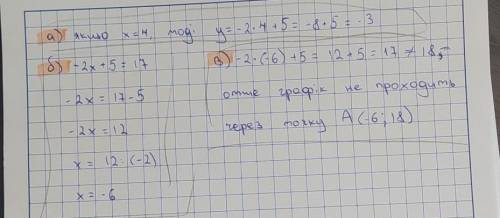 а) якщо x=4, тоді y=-2·4+5=-8+5=-3
б) -2x+5=17
-2x=17-5
-2x=12
x= 12·(-2)
x=-6
в) -2·(-6)+5=12+5=17≠18,-
отже графік не проходить
через точку А(-6; 18)